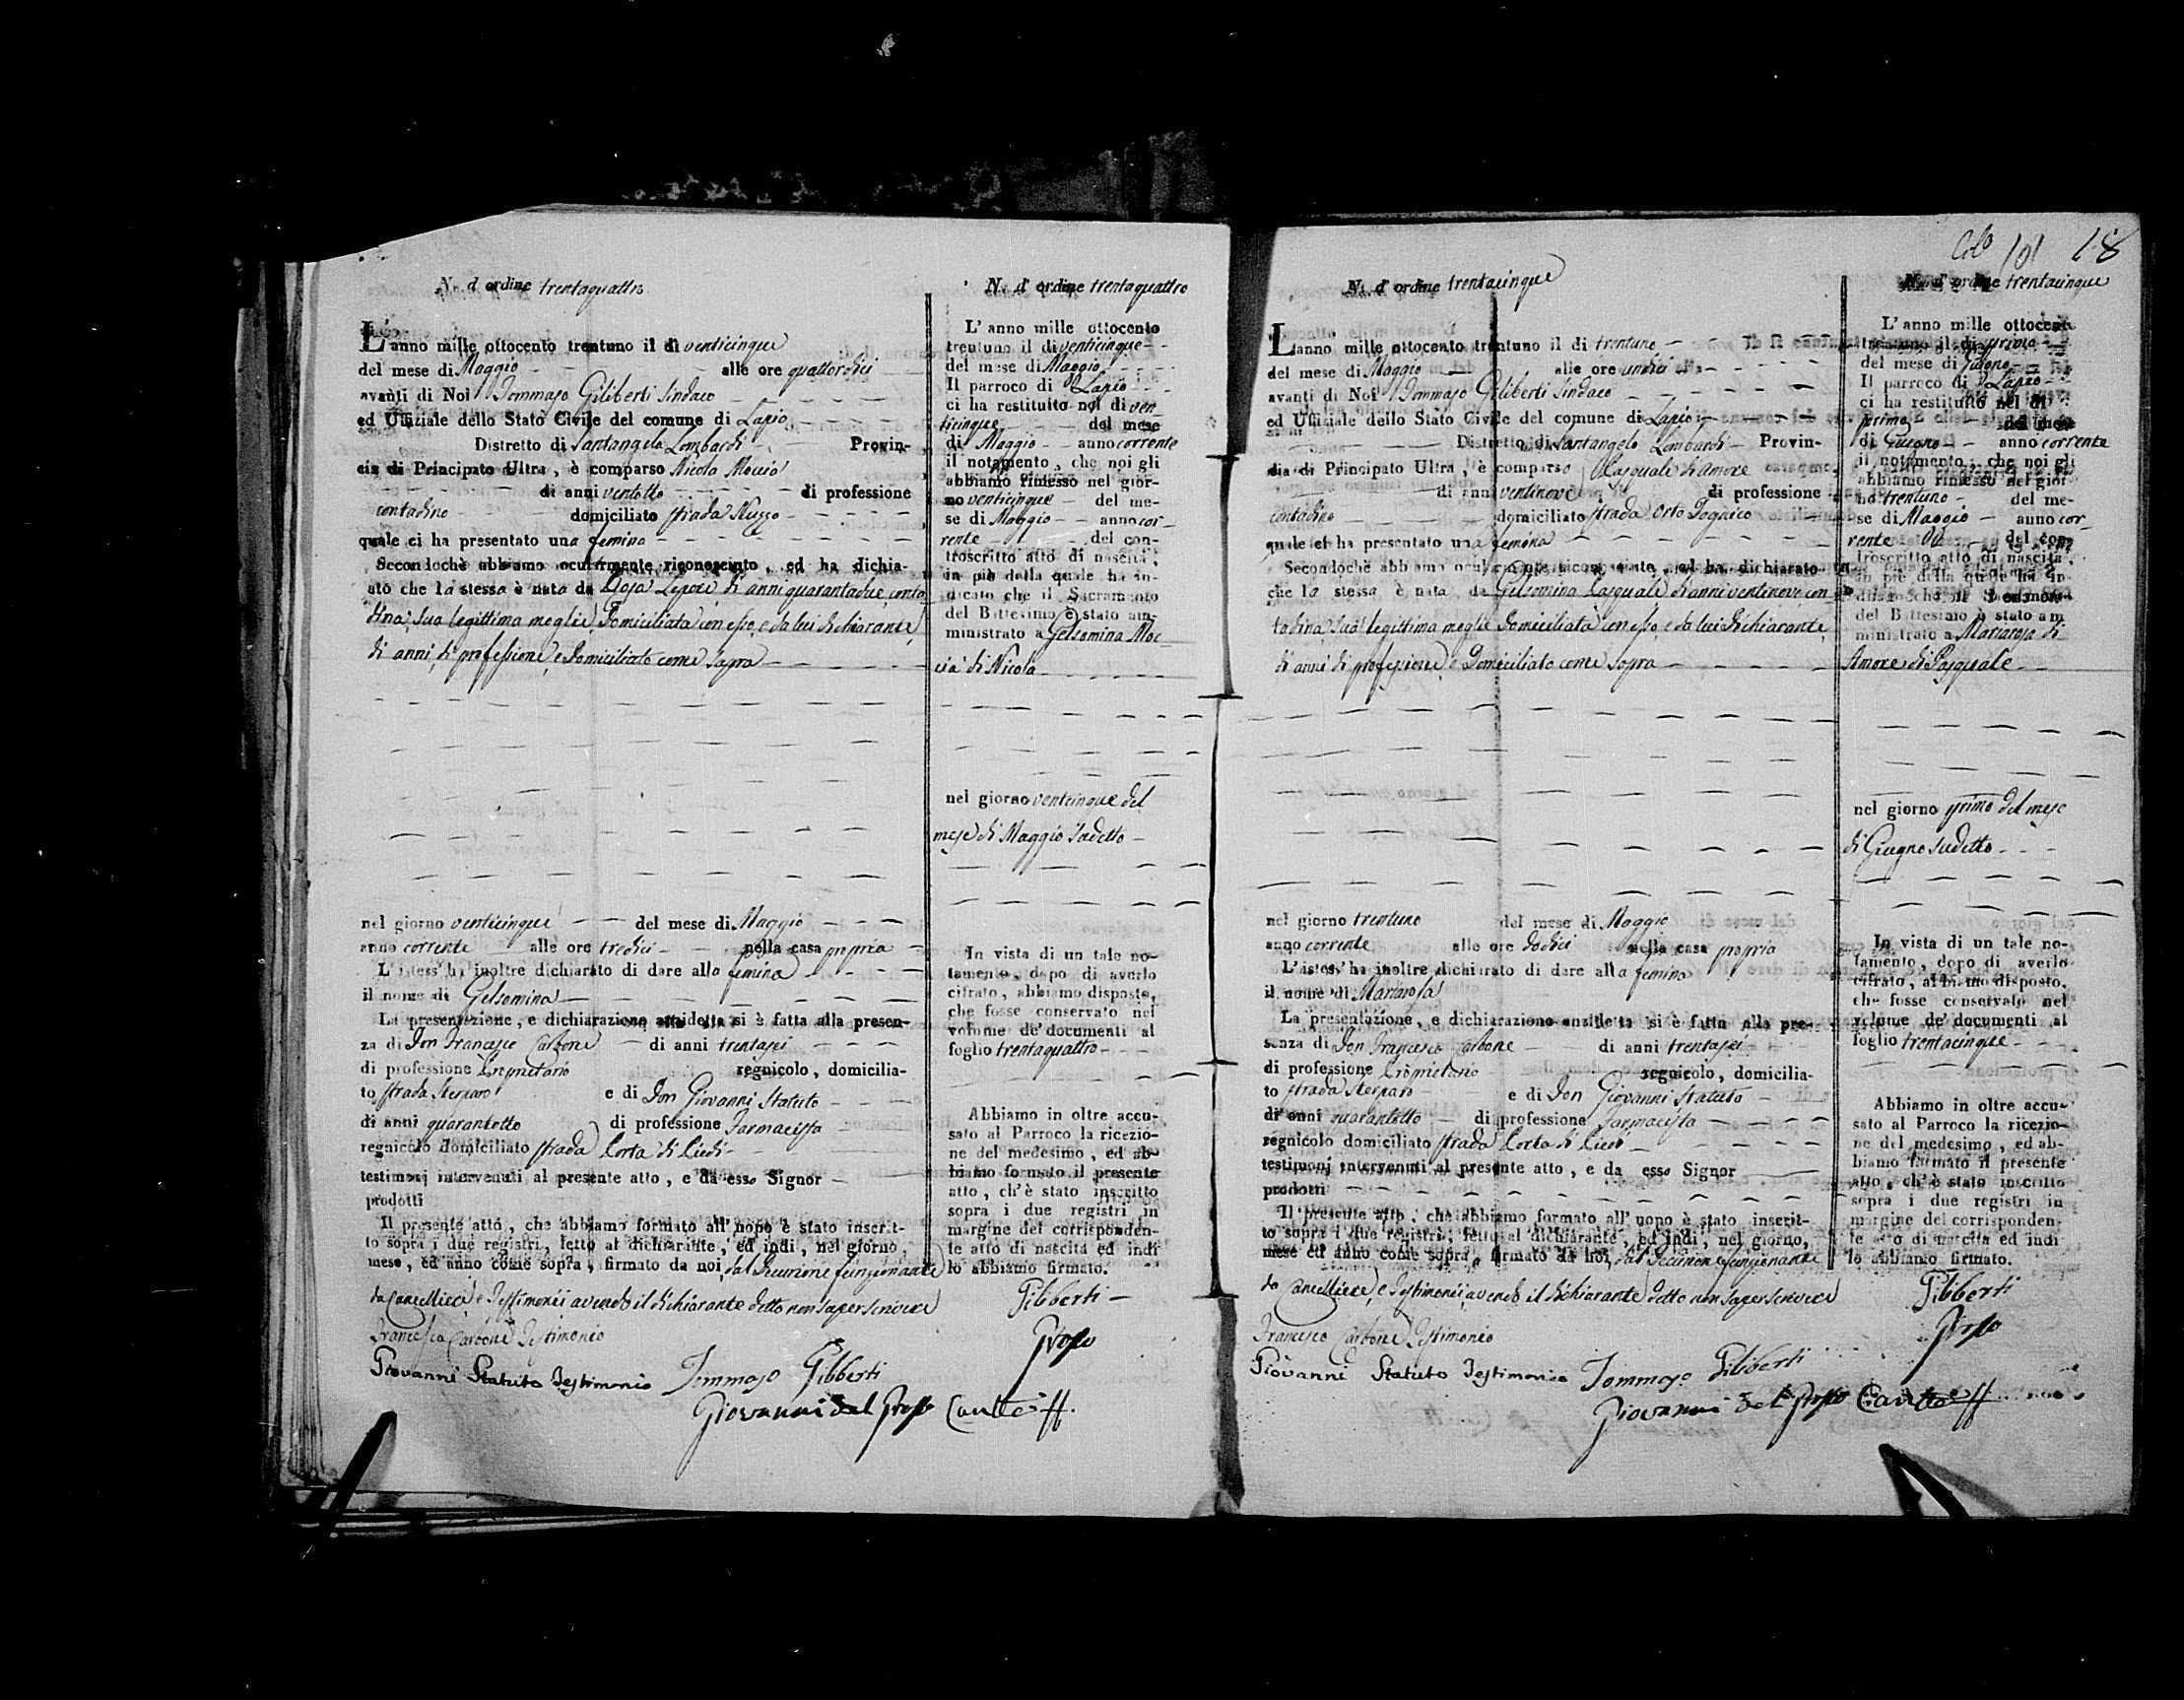 N. d'ordine trentaquattro
L'anno mille ottocento trentuno il dì venticinque
del mese di Maggio alle ore quattordici
avanti di Noi Tommaso Giliberti Sindaco
ed Uffiziale dello Stato Civile del comune di Lapio
Distretto di Santangelo Lombardi Provin-
cia di Principato Ultra, è comparso Nicola Moccia
di anni ventotto di professione
contadino domiciliato strada
quale ci ha presentato una femina
Secondochè abbiamo ocularmente riconosciuto, ed ha dichia-
ato che la stessa è nata da Rosa Lepore di anni quarantadue, conta
dina, sua legittima moglie, Domiciliata con esso, e da lui dichiarante
di anni, di professione, e Domiciliato come sopra
nel giorno venticinque del mese di Maggio
anno corrente alle ore tredici nella casa propria
L'istess' ha inoltre dichiarato di dare alla femina
il nome di Gelsomina
La presentazione, e dichiarazione anzidetta si è fatta alla presen-
za di Don Francesco Carbone di anni trentasei
di professione Proprietario regnicolo, domicilia-
to strada Sterparo e di Don Giovanni Statuto
di anni quarantotto di professione Farmacista
regnicolo domiciliato strada Porta di
testimonj intervenuti al presente atto, e da esso Signor
prodotti
Il presente atto, che abbiamo formato all'uopo è stato inscrit-
to sopra i due registri, letto al dichiarante, ed indi, nel giorno,
mese, ed anno come sopra, firmato da noi, dal Decurione funzionante
da Cancelliere, e Testimonii avendo il dichiarante detto non saper scrivere
Francesco Carbone Testimonio
Giovanni Statuto Testimonio Tommaso Giliberti
Giovanni del Grosso Canc.e ff.
N. d'ordine trentaquattro
L'anno mille ottocento
trentuno il di venticinque
del mese di Maggio
Il parroco di Lapio
ci ha restituito nel di ven
ticinque del mese
di Maggio anno corrente
il notamento, che noi gli
abbiamo rimesso nel gior-
no venticinque del me-
se di Maggio anno cor-
rente del con-
troscritto atto di nascita,
in piè della quale ha in-
dicato che il Sacramento
del Battesimo è stato am-
ministrato a Gelsomina Moc
cia di Nicola
nel giorno venticinque del
mese di Maggio sudetto
In vista di un tale no-
tamento, dopo di averlo
cifrato, abbiamo disposto,
che fosse conservato nel
volume de' documenti al
foglio trentaquattro
Abbiamo in oltre accu-
sato al Parroco la ricezio-
ne del medesimo, ed ab-
biamo formato il presente
atto, ch'è stato inscritto
sopra i due registri in
margine del corrisponden-
te atto di nascita ed indi
lo abbiamo firmato.
Giliberti
Grosso
101 18
N. d'ordine trentacinque
L'anno mille ottocento trentuno il di trentuno
del mese di Maggio alle ore undici
avanti di Noi Tommaso Giliberti Sindaco
ed Uffiziale dello Stato Civile del comune di Lapio
Distretto di Santangelo Lombardi Provin-
cia di Principato Ultra, è comparso Pasquale di Amore
di anni ventinove di professione
contadino domiciliato strada Orto
quale ci ha presentato una femina
Secondochè abbiamo ocularmente riconosciuto, ed ha dichiarato
che la stessa è nata da Gelsomina Pasquale di anni ventinove con
tadina sua legittima moglie Domiciliata con esso, e da lui dichiarante
di anni di professione, e Domiciliato come sopra
nel giorno trentuno del mese di Maggio
anno corrente alle ore dodici nella casa propria
L'istess' ha inoltre dichiarato di dare alla femina
il nome di Mariarosa
La presentazione, e dichiarazione anzidetta si è fatta alla pre-
senza di Don Francesco Carbone di anni trentasei
di professione Proprietario regnicolo, domicilia-
to strada Sterparo e di Don Giovanni Statuto
di anni quarantotto di professione Farmacista
regnicolo domiciliato strada Porta di
testimonj intervenuti al presente atto, e da esso Signor
prodotti
Il presente atto, che abbiamo formato all'uopo è stato inscrit-
to sopra i due registri, letto al dichiarante, ed indi, nel giorno,
mese ed anno come sopra, firmato da noi, dal Decurione funzionante
da Cancelliere, e Testimonii avendo il dichiarante detto non saper scrivere
Francesco Carbone Testimonio
Giovanni Statuto Testimonio Tommaso Giliberti
Giovanni del Grosso Canc.e ff
N. d'ordine trentacinque
L'anno mille ottocento
trentuno il di primo
del mese di Giugno
Il parroco di Lapio
ci ha restituito nel di
primo del mese
di Giugno anno corrente
il notamento, che noi gli
abbiamo rimesso nel gior
no trentuno del me-
se di Maggio anno cor-
rente del con-
troscritto atto di nascita,
in piè della quale ha in-
dicato che il Sacramento
del Battesimo è stato am
ministrato a Mariarosa di
Amore di Pasquale
nel giorno primo del mese
di Giugno sudetto
In vista di un tale no-
tamento, dopo di averlo
cifrato, abbiamo disposto,
che fosse conservato nel
volume de' documenti al
foglio trentacinque
Abbiamo in oltre accu-
sato al Parroco la ricezio-
ne del medesimo, ed ab-
biamo formato il presente
atto, ch'è stato inscritto
sopra i due registri in
margine del corrisponden-
te atto di nascita ed indi
lo abbiamo firmato.
Giliberti
Grosso